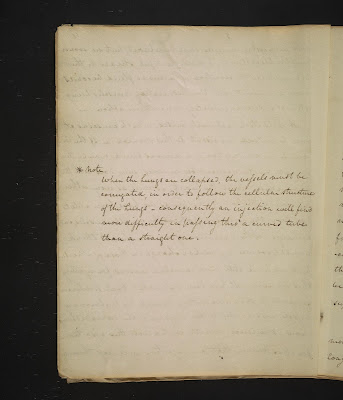 * Note
When the lungs are collapsed, the vessels must be
corrugated in order to follow the cellular structure
of the lungs - consequently an injection will find
more difficulty in passing thro a curved tube
than a straight one.